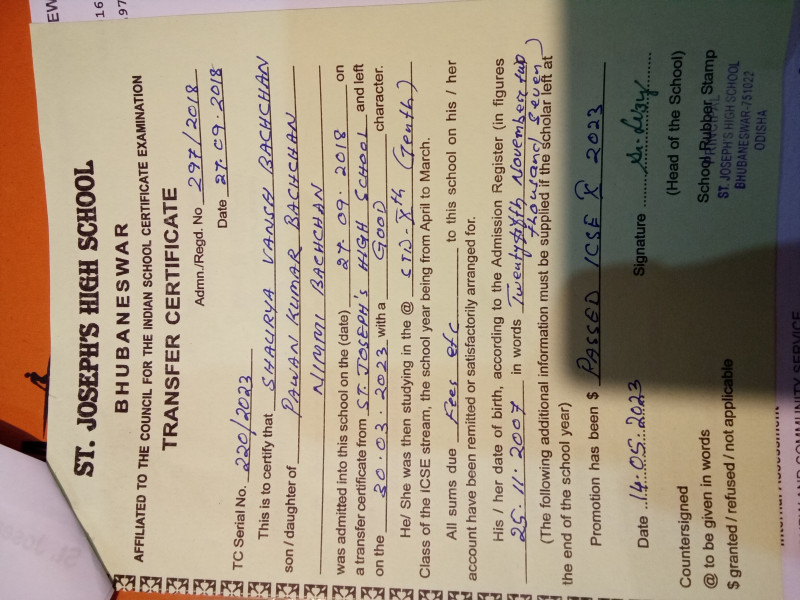 ST. JOSEPH'S HIGH SCHOOL
BHUBANESWAR
AFFILIATED TO THE COUNCIL FOR THE INDIAN SCHOOL CERTIFICATE EXAMINATION
TRANSFER CERTIFICATE
Admn./Regd. No 297/2018
TC Serial No. 220/2023 Date 27.09.2018
This is to certify that SHAURYA VANSH BACHCHAN
son / daughter of PAWAN KUMAR BACHCHAN
NIMMI BACHCHAN
was admitted into this school on the (date) 27.09.2018 on
a transfer certificate from ST. JOSEPH'S HIGH SCHOOL and left
on the 30.03.2023 with a GOOD character.
He/ She was then studying in the @ STD-Xth (Tenth)
Class of the ICSE stream, the school year being from April to March.
All sums due Fees etc to this school on his / her
account have been remitted or satisfactorily arranged for.
His / her date of birth, according to the Admission Register (in figures
25.11.2007 in words November two
thousand seven)
(The following additional information must be supplied if the scholar left at
the end of the school year)
Promotion has been $ PASSED ICSE X 2023
Date 14.05.2023 Signature
(Head of the School)
Countersigned School Rubber Stamp
@ to be given in words
$ granted / refused / not applicable
ST. JOSEPH'S HIGH SCHOOL
BHUBANESWAR-751022
ODISHA